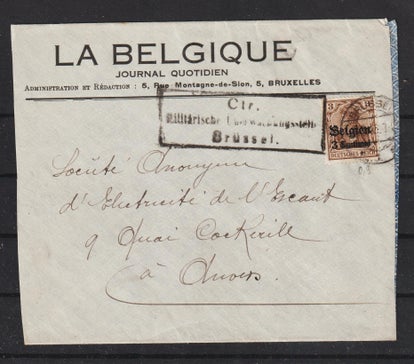 LA BELGIQUE
JOURNAL QUOTIDIEN
ADMINISTRATION ET RÉDACTION : 5, Rue Montagne-de-Sion, 5, BRUXELLES
Ctr.
Militärische Überwachungsstelle
Brüssel.
3
Belgien
3 Centimes
DEUTSCHES REICH
Société Anonyme
d'Electricité de l'Escaut
9 Quai Cockerill
à Anvers